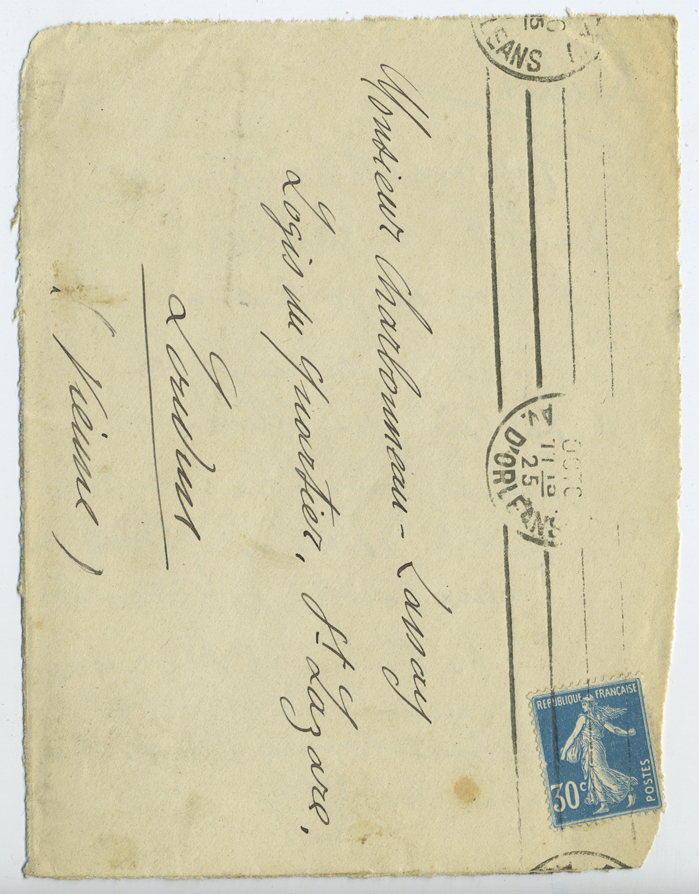 Monsieur Charbonneau-Lassay
Logis du Quartier, St Lazare,
Loudun
(Vienne)
REPUBLIQUE FRANÇAISE
POSTES
30c
OCTO
25
D'ORLEANS
LEANS